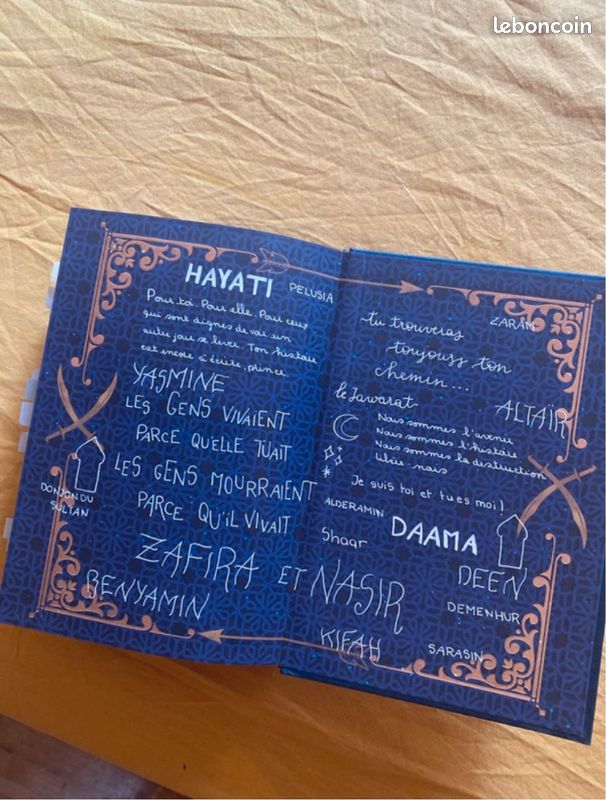 leboncoin
HAYATI
PELUSIA
Pour toi. Pour elle. Pour ceux
qui sont dignes de voir un
autre jour se lever. Ton histoire
est encore à écrire, prince.
YASMINE
LES GENS VIVAIENT
PARCE QU'ELLE TUAIT
LES GENS MOURRAIENT
PARCE QU'IL VIVAIT
DONJON DU
SULTAN
ZAFIRA ET NASIR
BENYAMIN
KIFAH
tu trouveras
toujours ton
chemin...
ZARÂM
ALTAÏR
le Jawarat
Nous sommes l'avenir
Nous sommes l'histoire
Nous sommes la destruction
Libère-nous
Je suis toi et tu es moi !
ALDERAMIN
DAAMA
Shaar
DEEN
DEMENHUR
SARASIN